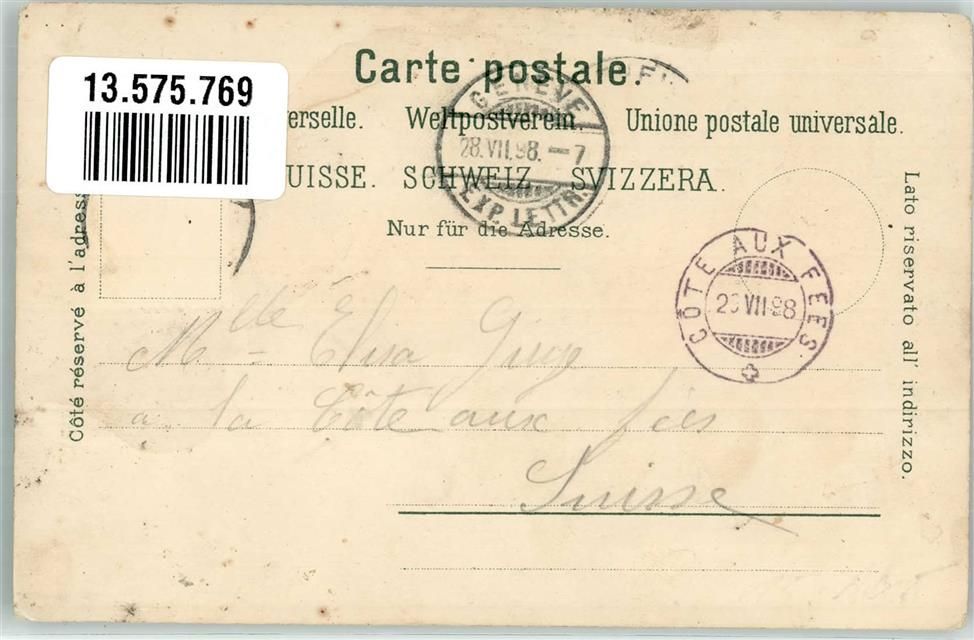 13.575.769
Carte postale.
erselle. Weltpostverein. Unione postale universale.
UISSE. SCHWEIZ SVIZZERA.
Nur für die Adresse.
Côté réservé à l'adresse
Lato riservato all' indirizzo.
GENÈVE
28.VII.98.–7
EXP. LETTR.
CÔTE AUX FÉES
VII 98
Mlle Elisa
a la Côte aux fées
Suisse